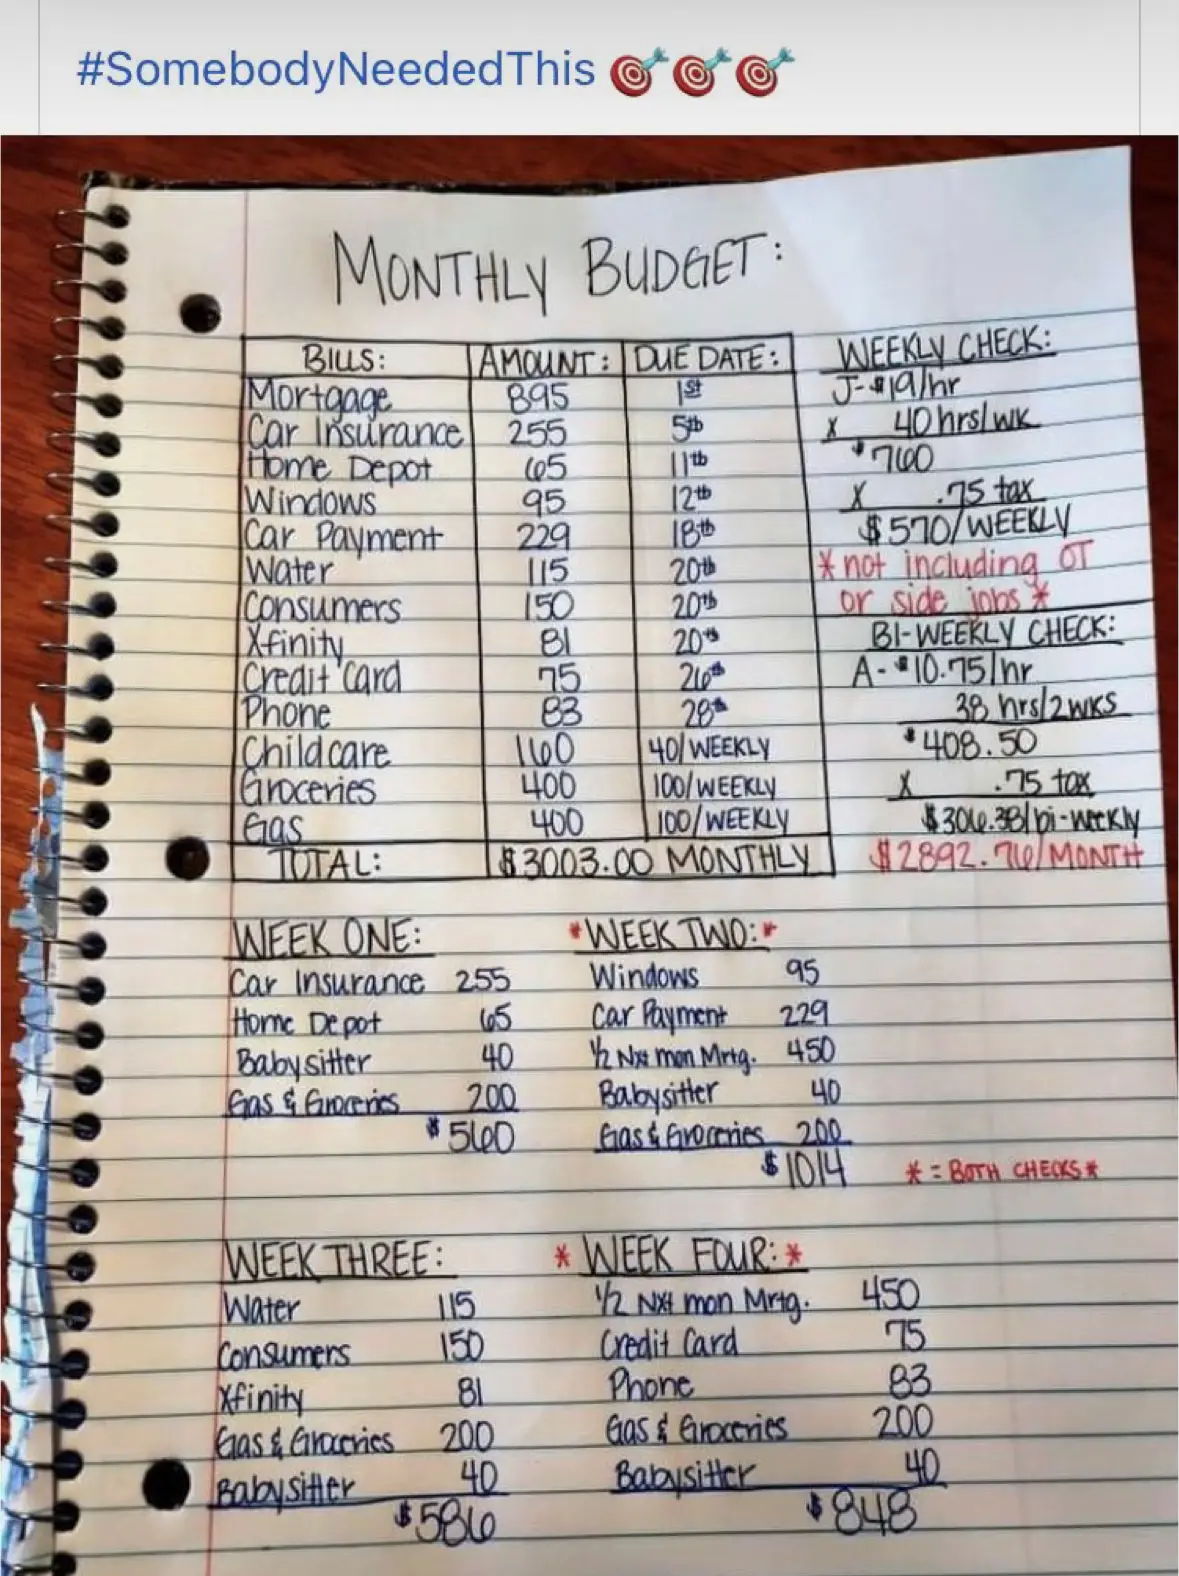 #SomebodyNeededThis 🎯🎯🎯
MONTHLY BUDGET:
BILLS: AMOUNT: DUE DATE:
Mortgage 895 1st
Car Insurance 255 5th
Home Depot 65 11th
Windows 95 12th
Car Payment 229 18th
Water 115 20th
Consumers 150 20th
Xfinity 81 20th
Credit Card 75 26th
Phone 83 28th
Childcare 160 40/WEEKLY
Groceries 400 100/WEEKLY
Gas 400 100/WEEKLY
TOTAL: $3003.00 MONTHLY
WEEKLY CHECK:
J-$19/hr
x 40 hrs/wk
$760
x .75 tax
$570/WEEKLY
*not including OT
or side jobs*
BI-WEEKLY CHECK:
A-$10.75/hr
38 hrs/2wks
$408.50
x .75 tax
$306.38/bi-weekly
$2892.76/MONTH
WEEK ONE:
Car Insurance 255
Home Depot 65
Babysitter 40
Gas & Groceries 200
$560
*WEEK TWO:*
Windows 95
Car Payment 229
1/2 Nxt mon Mrtg. 450
Babysitter 40
Gas & Groceries 200
$1014
* = BOTH CHECKS*
WEEK THREE:
Water 115
Consumers 150
Xfinity 81
Gas & Groceries 200
Babysitter 40
$586
* WEEK FOUR:*
1/2 Nxt mon Mrtg. 450
Credit Card 75
Phone 83
Gas & Groceries 200
Babysitter 40
$848